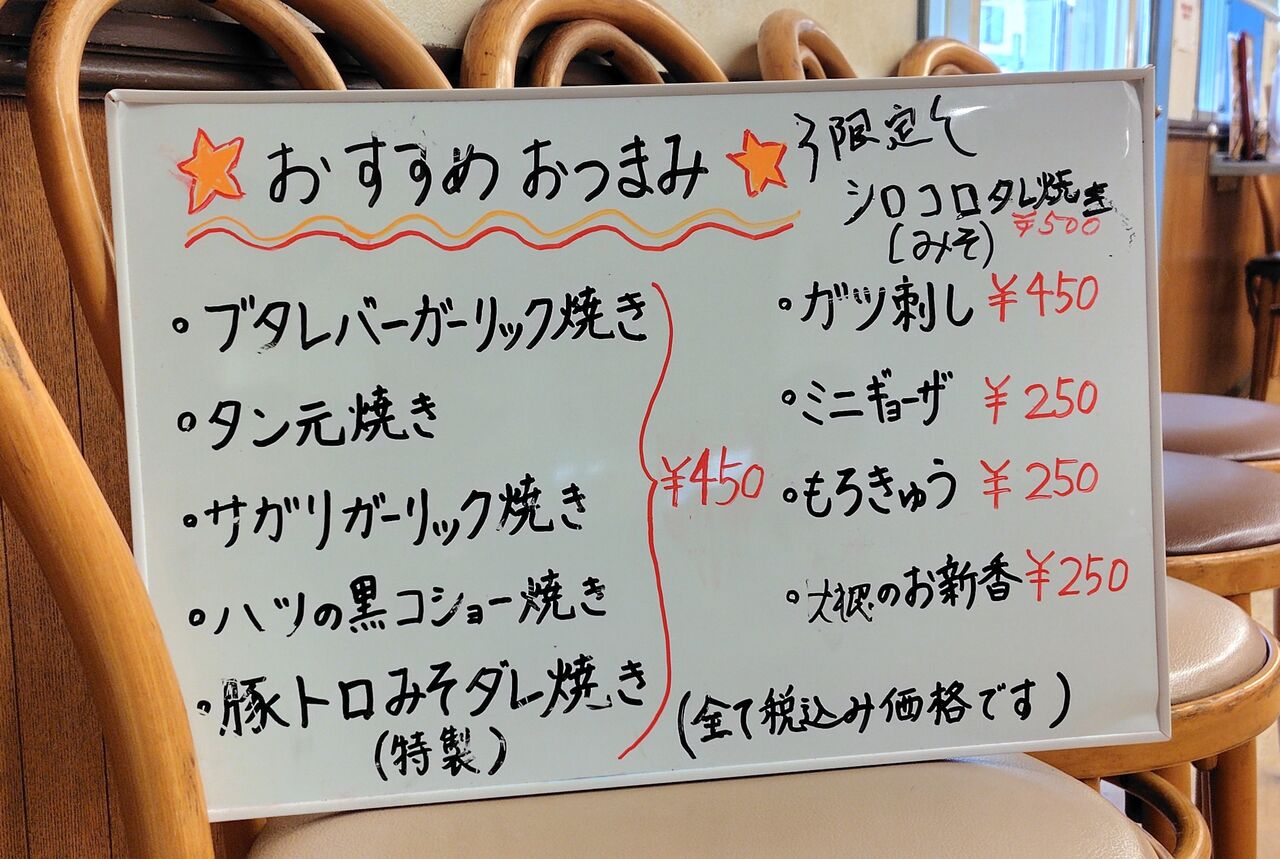 おすすめおつまみ
限定
シロコロタレ焼き
(みそ)
¥500
ブタレバーガーリック焼き
タン元焼き
サガリガーリック焼き
ハツの黒コショー焼き
豚トロみそダレ焼き
(特製)
¥450
ガツ刺し ¥450
ミニギョーザ ¥250
もろきゅう ¥250
大根のお新香 ¥250
(全て税込み価格です)